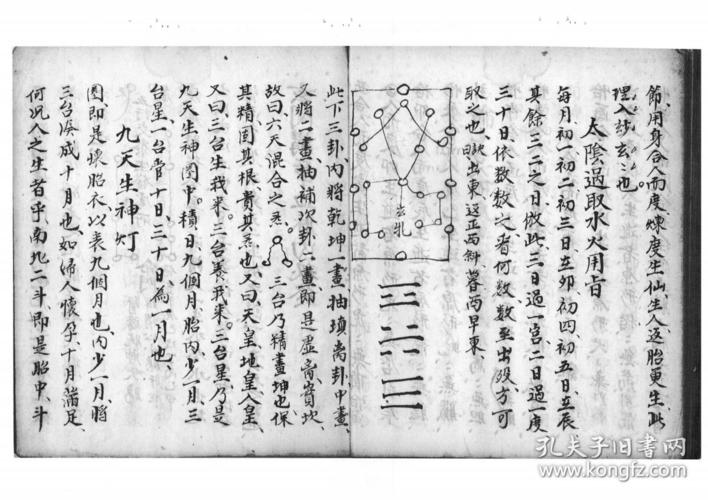 節、用身合人而度煉度生仙、生人返胎更生、此
理入步玄之也。
太陰過取水火用旨
每月初一初二初三日在卯、初四、初五日在辰
其餘三二之日倣此、三日過一宮、二日過一度
三十日依數數之、看何數、數至出殁方、可
取之也、歌出東、返正西斜暮西早東、
玄乳
此下三卦、內將乾坤一畫抽填离卦中畫、
又將二畫、抽補次卦二畫即是虛育實坎
故曰、六天混合之炁。三台乃精畫坤也保
其精、固其根、貴其炁也、又曰天皇、地皇、人皇、
又曰三台生我來。三台養我來。三台星、乃是
九天生神圖中。積日九個月、胎內、少一月、三
台星、一台管十日、三十日、為一月也、
九天生神灯
圈、即是壞胎衣以表九個月也、內少一月、將
三台湊成十月也、如婦人懷孕、十月滿足、
何況人之生者乎、南北二斗即是胎中、斗
孔夫子旧书网
www.kongfz.com